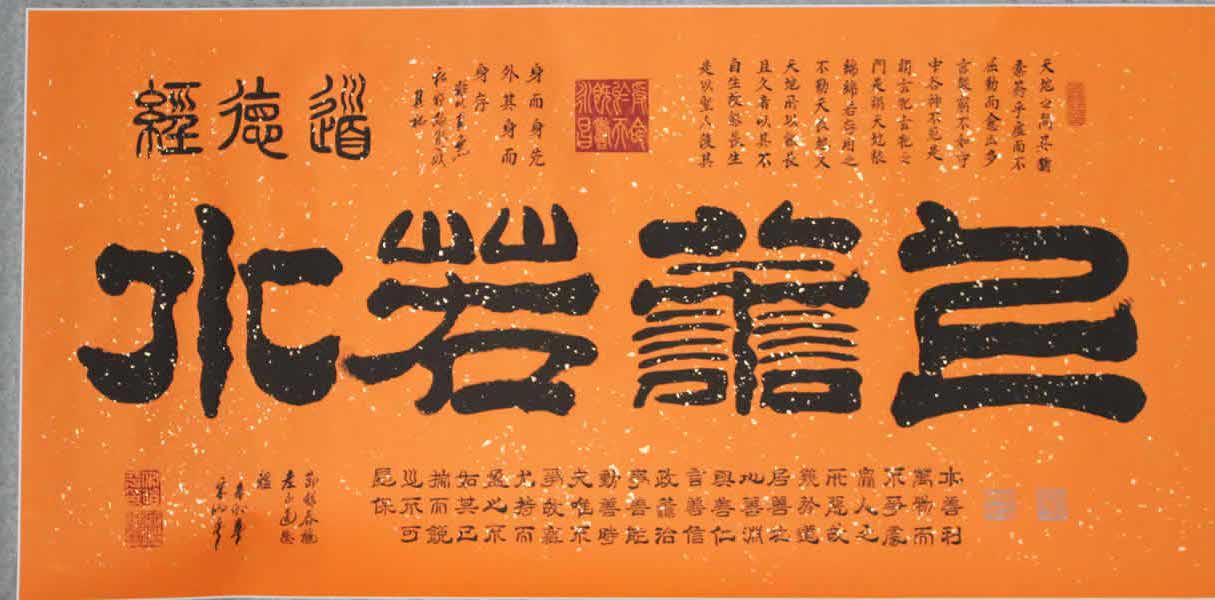 天地之間其猶
橐籥乎虛而不
屈動而愈出多
言數窮不如守
中谷神不死是
謂玄牝玄牝之
門是謂天地根
綿綿若存用之
不勤天長地久
天地所以能長
且久者以其不
自生故能長生
是以聖人後其
受命於天既壽永昌
身而身先
外其身而
身存
非以其無
私耶故能成
其私
道德經
上善若水
水善利
萬物而
不爭處
衆人之
所惡故
幾於道
居善地
心善淵
與善仁
言善信
政善治
事善能
動善時
夫唯不
爭故無
尤持而
盈之不
如其已
揣而銳
之不可
長保